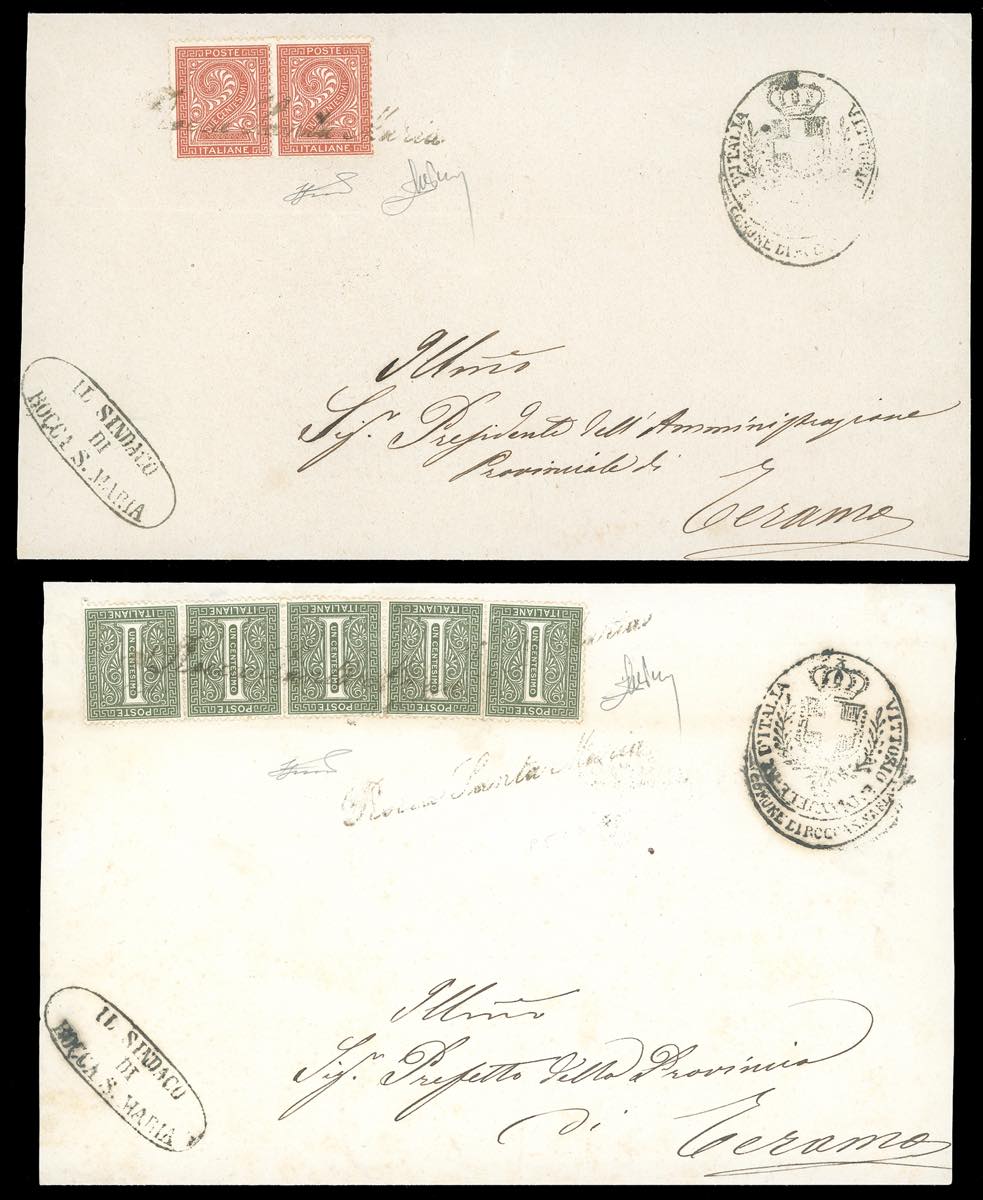 POSTE POSTE
2 2
DUE CENTESIMI DUE CENTESIMI
ITALIANE ITALIANE
Rocca Santa Maria
VITTORIO D'ITALIA
COMUNE DI
IL SINDACO
DI
ROCCA S. MARIA
Illmo
Sig. Presidente dell'Amministrazione
Provinciale di
Teramo
ITALIANE ITALIANE ITALIANE ITALIANE ITALIANE
1 1 1 1 1
UN CENTESIMO UN CENTESIMO UN CENTESIMO UN CENTESIMO UN CENTESIMO
POSTE POSTE POSTE POSTE POSTE
Rocca Santa Maria
VITTORIO EMANUELE D'ITALIA
COMUNE DI ROCCA S. MARIA
IL SINDACO
DI
ROCCA S. MARIA
Illmo
Sig. Prefetto della Provincia
di Teramo